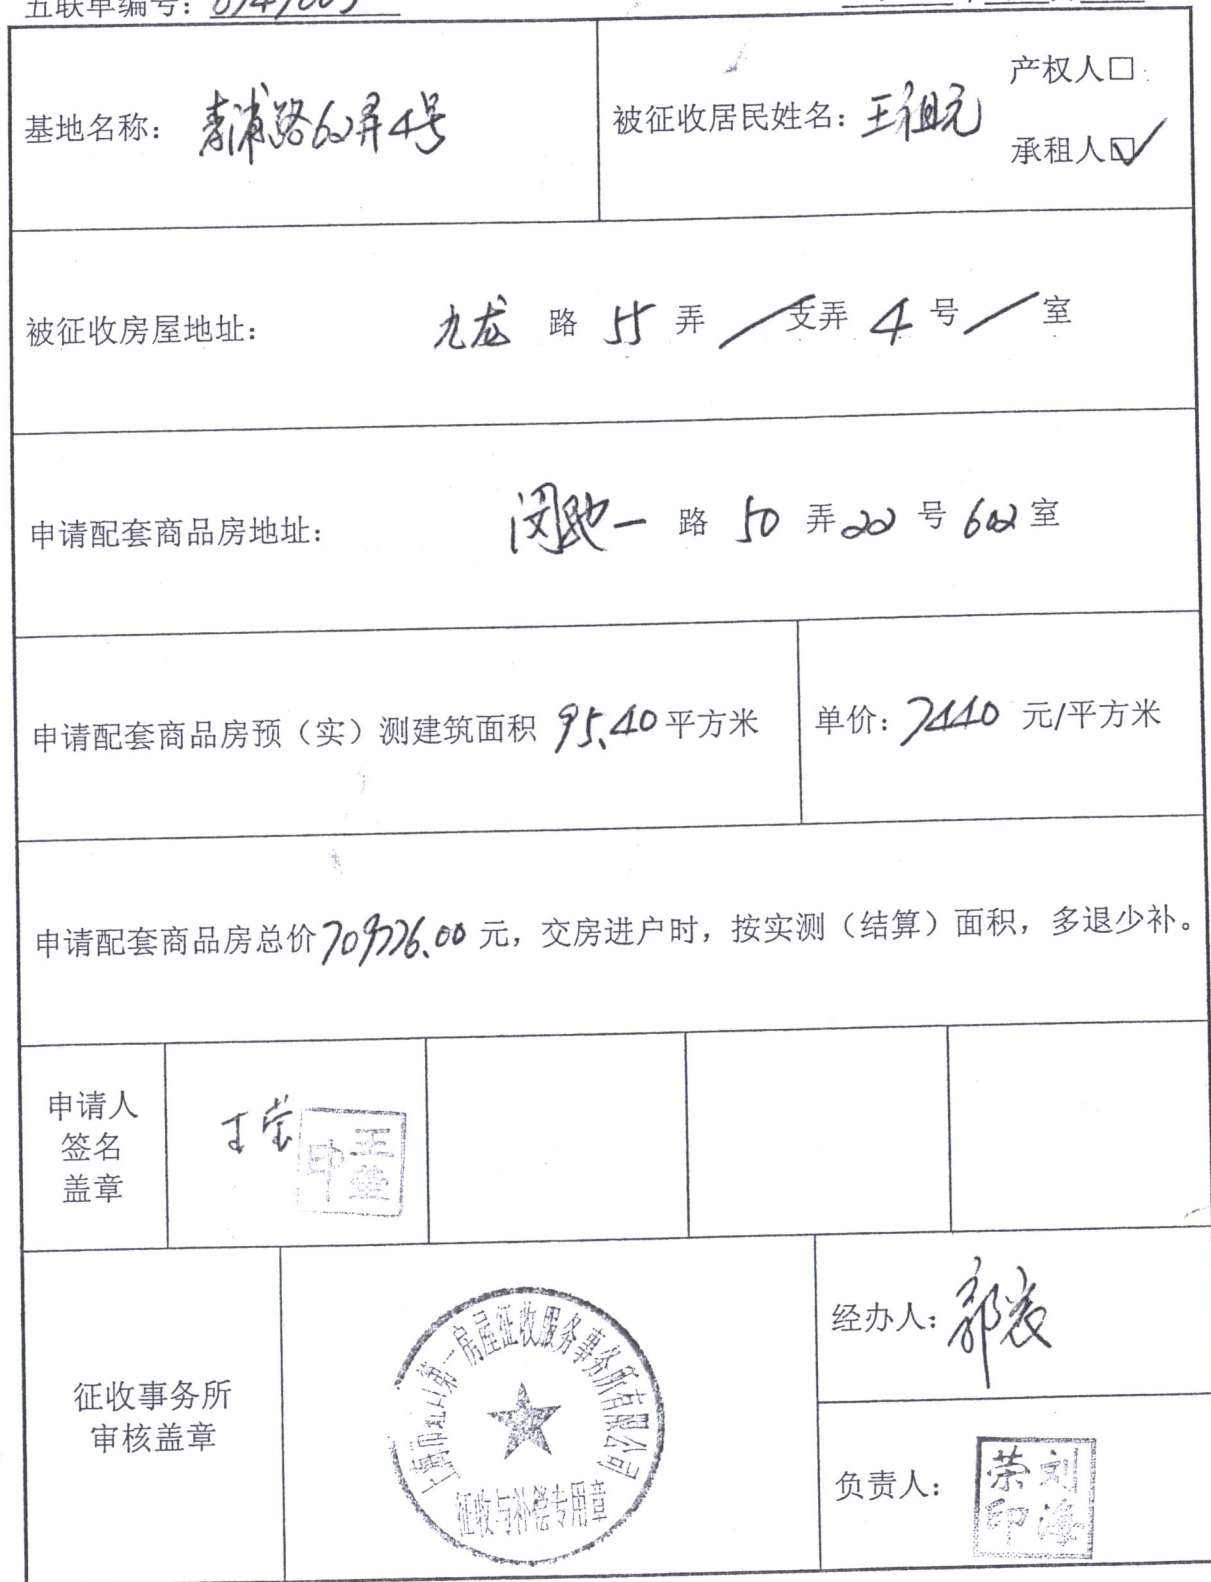 五联单编号：
基地名称：青浦路60弄4号
被征收居民姓名：王祖元
产权人□
承租人☑
被征收房屋地址：九龙 路 55 弄 / 支弄 4 号 / 室
申请配套商品房地址：闵驰一 路 50 弄 22 号 602 室
申请配套商品房预（实）测建筑面积 95.40 平方米
单价：7440 元/平方米
申请配套商品房总价709776.00元，交房进户时，按实测（结算）面积，多退少补。
申请人
签名
盖章
王莹
王莹
印
征收事务所
审核盖章
上海市虹口第一房屋征收服务事务所有限公司
征收与补偿专用章
经办人：
负责人：
刘海
荣印